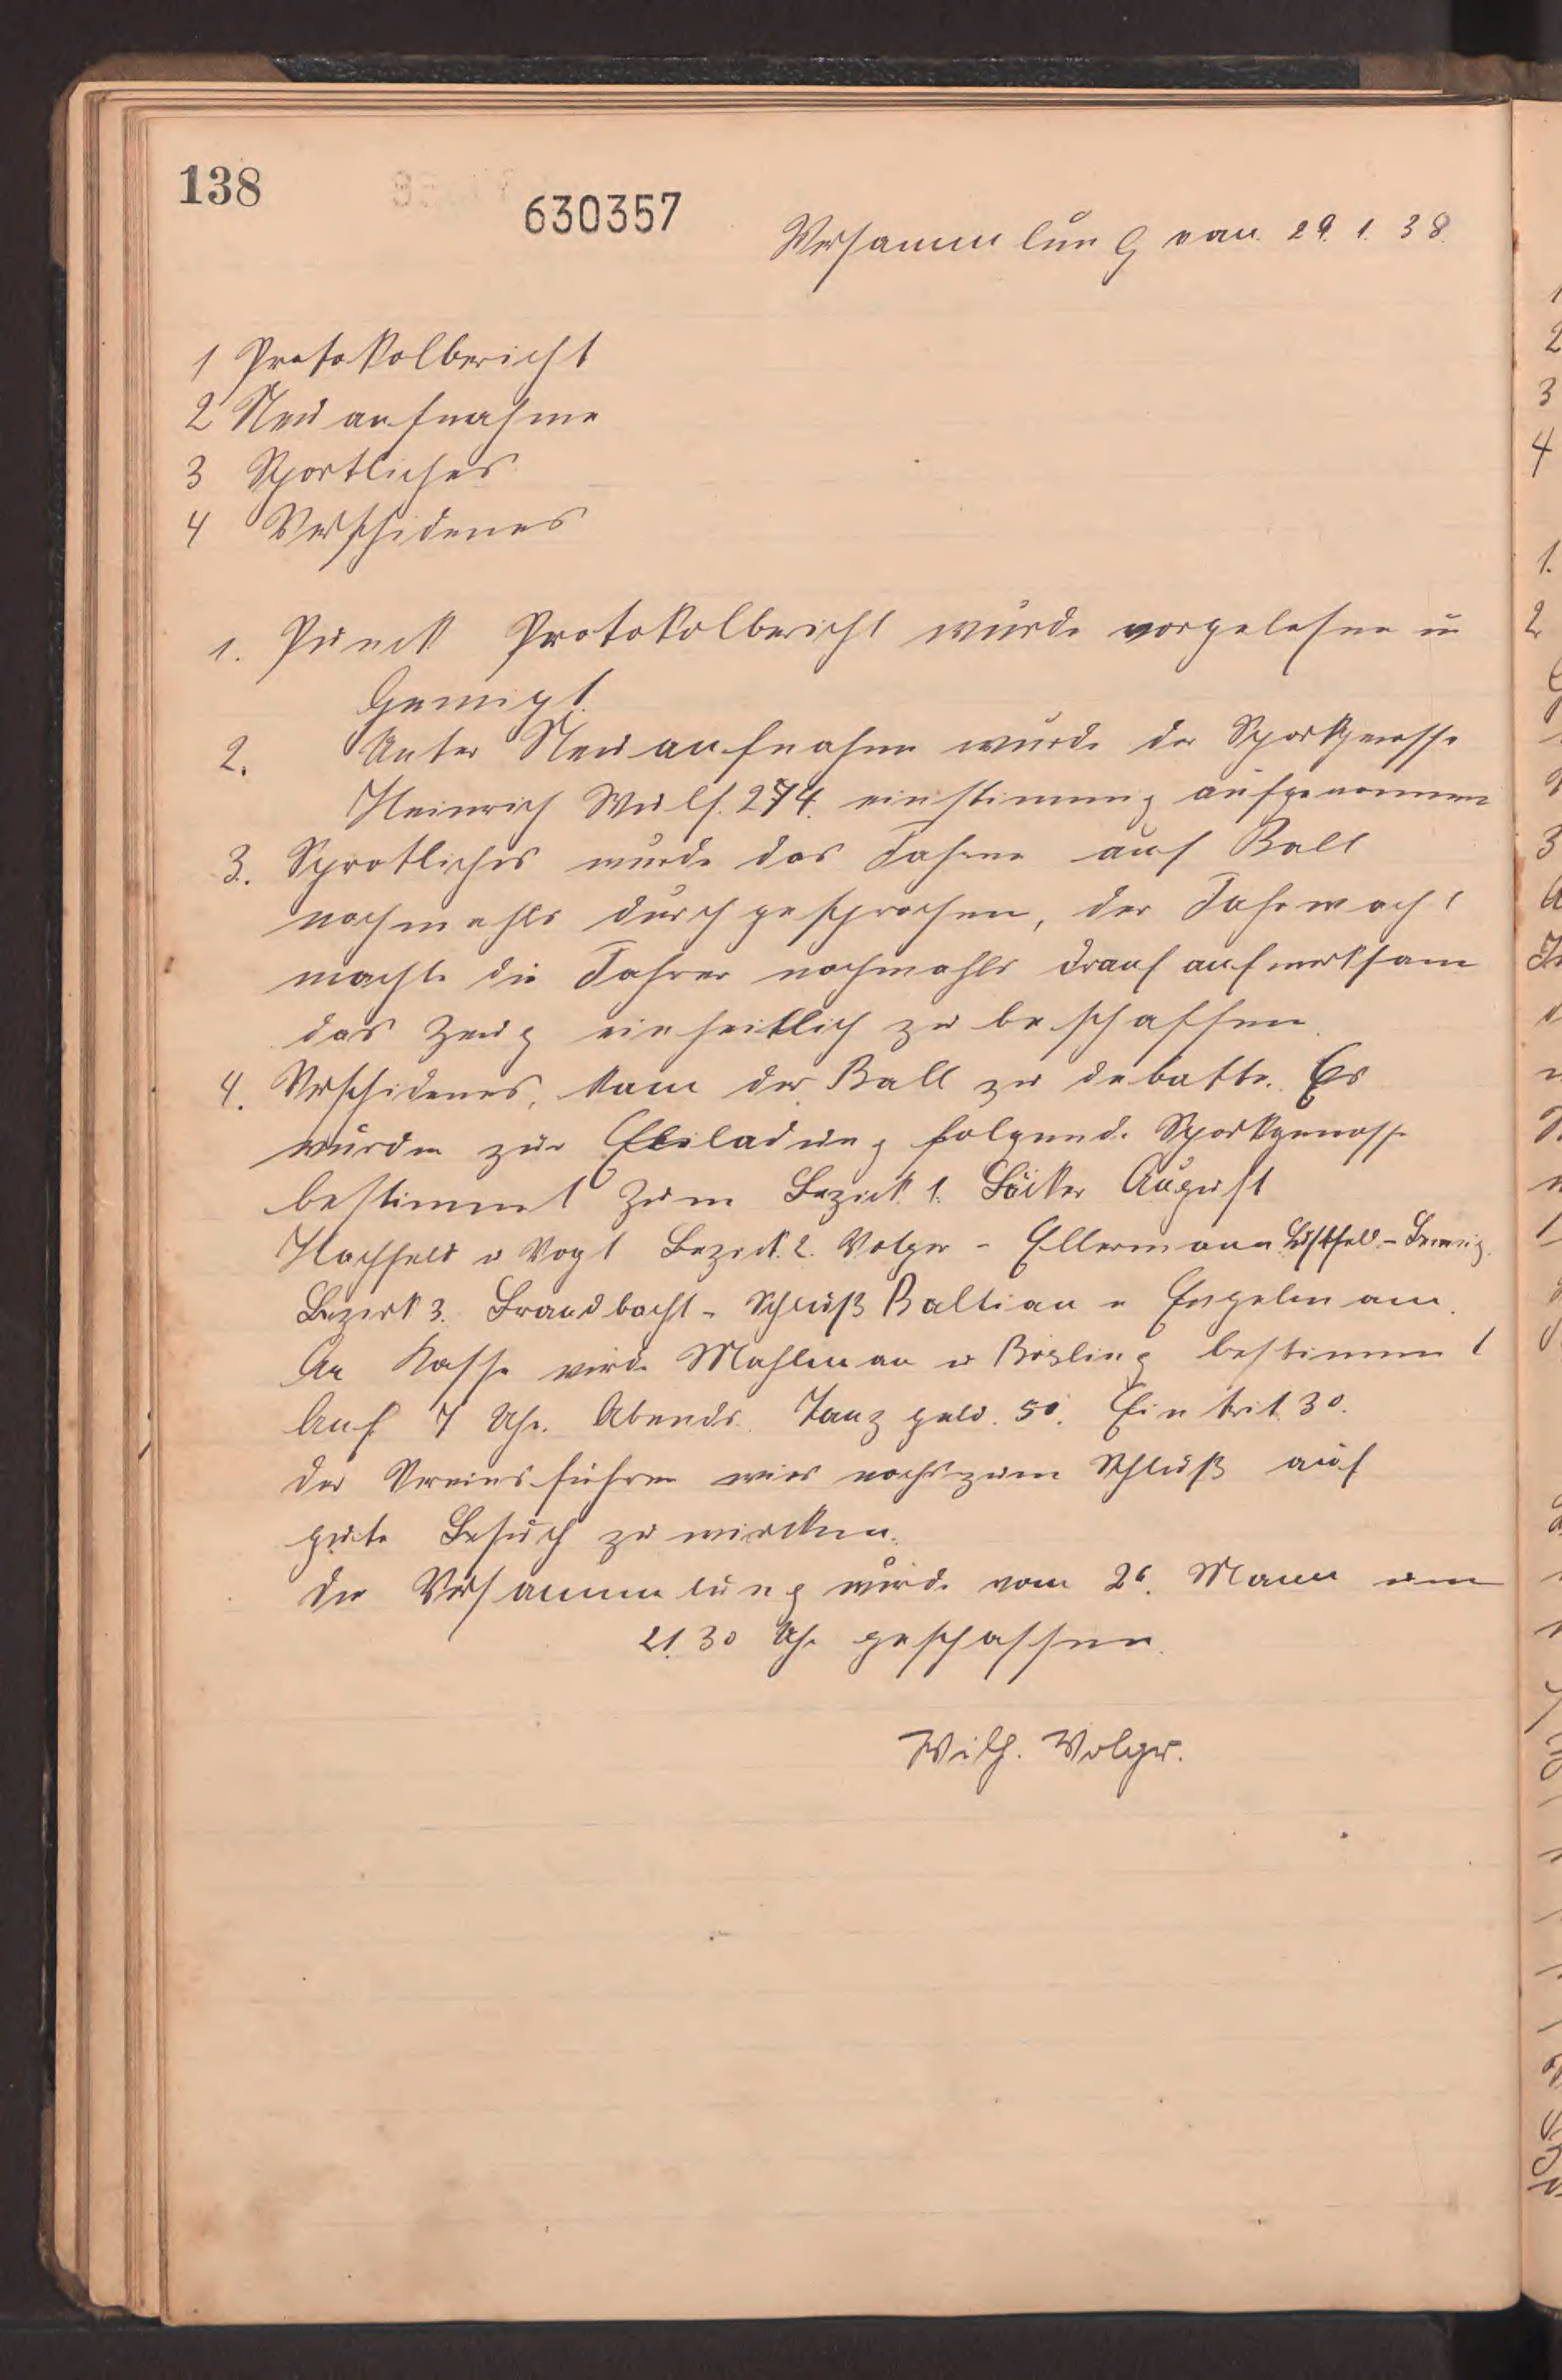 138
630357
Versammlung vom 29. 1. 38.
1 Protokolbericht
2 Neuaufnahme
3 Sportliches
4 Verschidenes
1. Punck Protokolbericht wurde vorgelesen u
Genemigt.
2. Unter Neuaufnahme wurde der Sportgenosse
Heinrich Wulf. 274. einstimmig aufgenommen
3. Sprotliches wurde das Fahren auf Ball
nochmahls durchgesprochen, der Fahrwach!
machte die Fahrer nochmahls drauf aufmerksam
das Zeug einheitlich zu beschaffen.
4. Verschidenes, kam der Ball zu debatte. Es
wurden zur Eiladung folgende Sportgenosse
bestimmt Zum Bezirk 1. Böcker August
Hachfeld u Vogt Bezirk. 2. Volger - Ellermann
Bezirk 3. Brandbacht - Schluß Baltian u Engelmann.
An Kasse wird Mahlman u Bösling bestimmt
Anf 7 Uhr. Abends. Tanzgeld. 50. Eintrit 30.
der Vereinsführer wies nochzum Schluß auf
gute Besuch zu wircken.
Die Versammlung wurde vom 26. Mann um
21.30 Uhr geschossen.
Wilh. Volger.